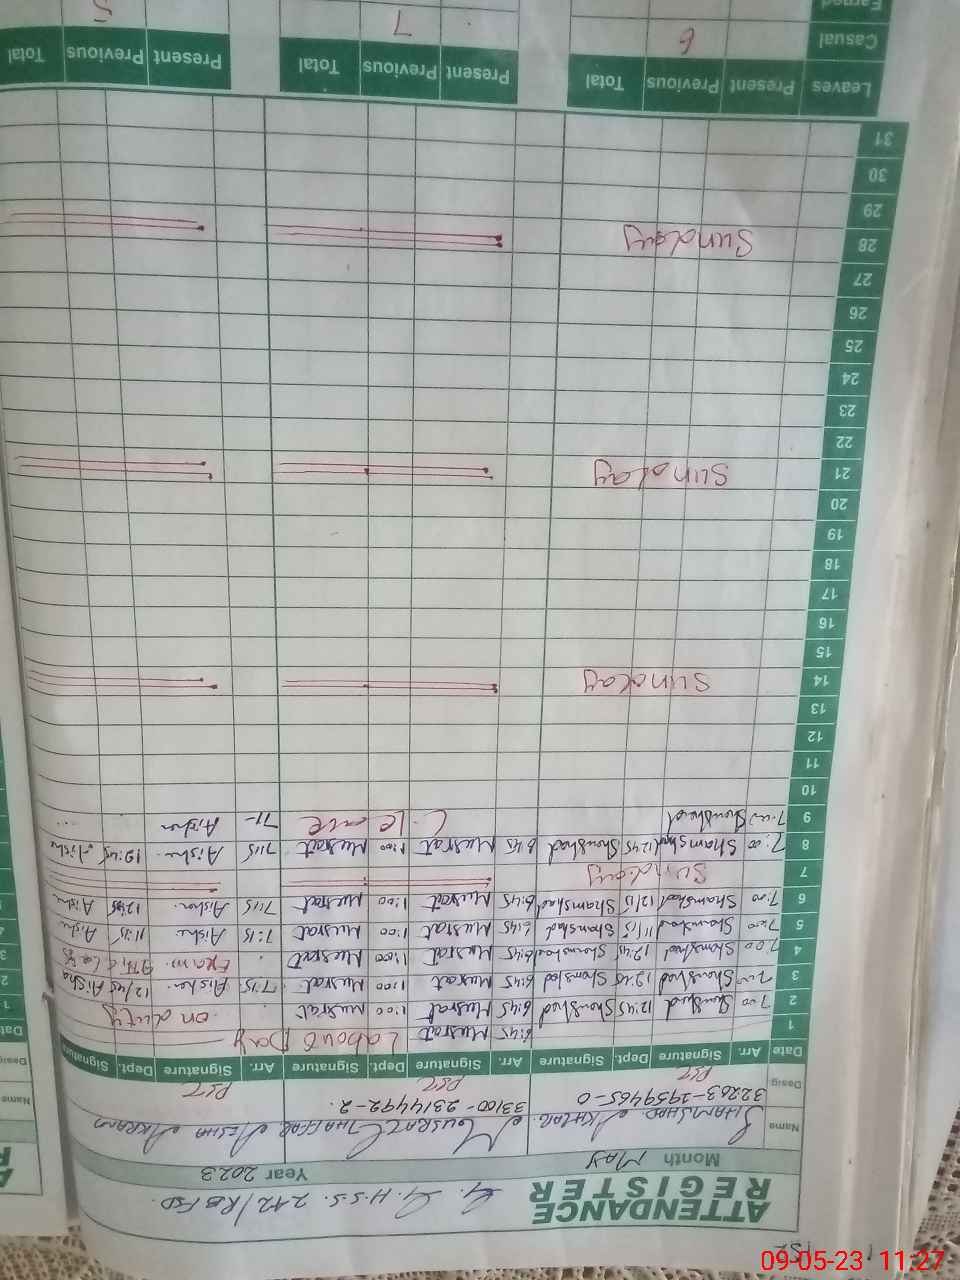 ATTENDANCE REGISTER
G.G.H.S.S. 242/RB FSD.
Month May Year 2023
Name SHAMSHAD AKHTAR NUSRAT GHAFFAR AESHA AKRAM
32263-2959465-0 33100-2314492-2
Desig: PST PST PST
Date Arr. Signature Dept. Signature Arr. Signature Dept. Signature Arr. Signature Dept. Signature
1 6:45 Musrat Labour Day
2 7:00 Shamshad 12:45 Shamshad 6:45 Musrat 1:00 Musrat on duty
3 7:00 Shamshad 12:45 Shamshad 6:45 Musrat 1:00 Musrat 7:15 Aisha 12:45 Aisha
4 7:00 Shamshad 12:45 Shamshad 6:45 Musrat 1:00 Musrat Exam.
5 7:00 Shamshad 11:15 Shamshad 6:45 Musrat 1:00 Musrat 7:15 Aisha 11:15 Aisha
6 7:00 Shamshad 12:15 Shamshad 6:45 Musrat 1:00 Musrat 7:15 Aisha 12:15 Aisha
7 Sunday
8 7:00 Shamshad 12:45 Shamshad 6:45 Musrat 1:00 Musrat 7:15 Aisha 12:45 Aisha
9 7:00 Shamshad C. leave Aisha
10
11
12
13
14 Sunday
15
16
17
18
19
20
21 Sunday
22
23
24
25
26
27
28 Sunday
29
30
31
Leaves Present Previous Total Present Previous Total Present Previous Total
Casual 6 7 5
Earned
Date
Desig:
Name
09-05-23 11:27